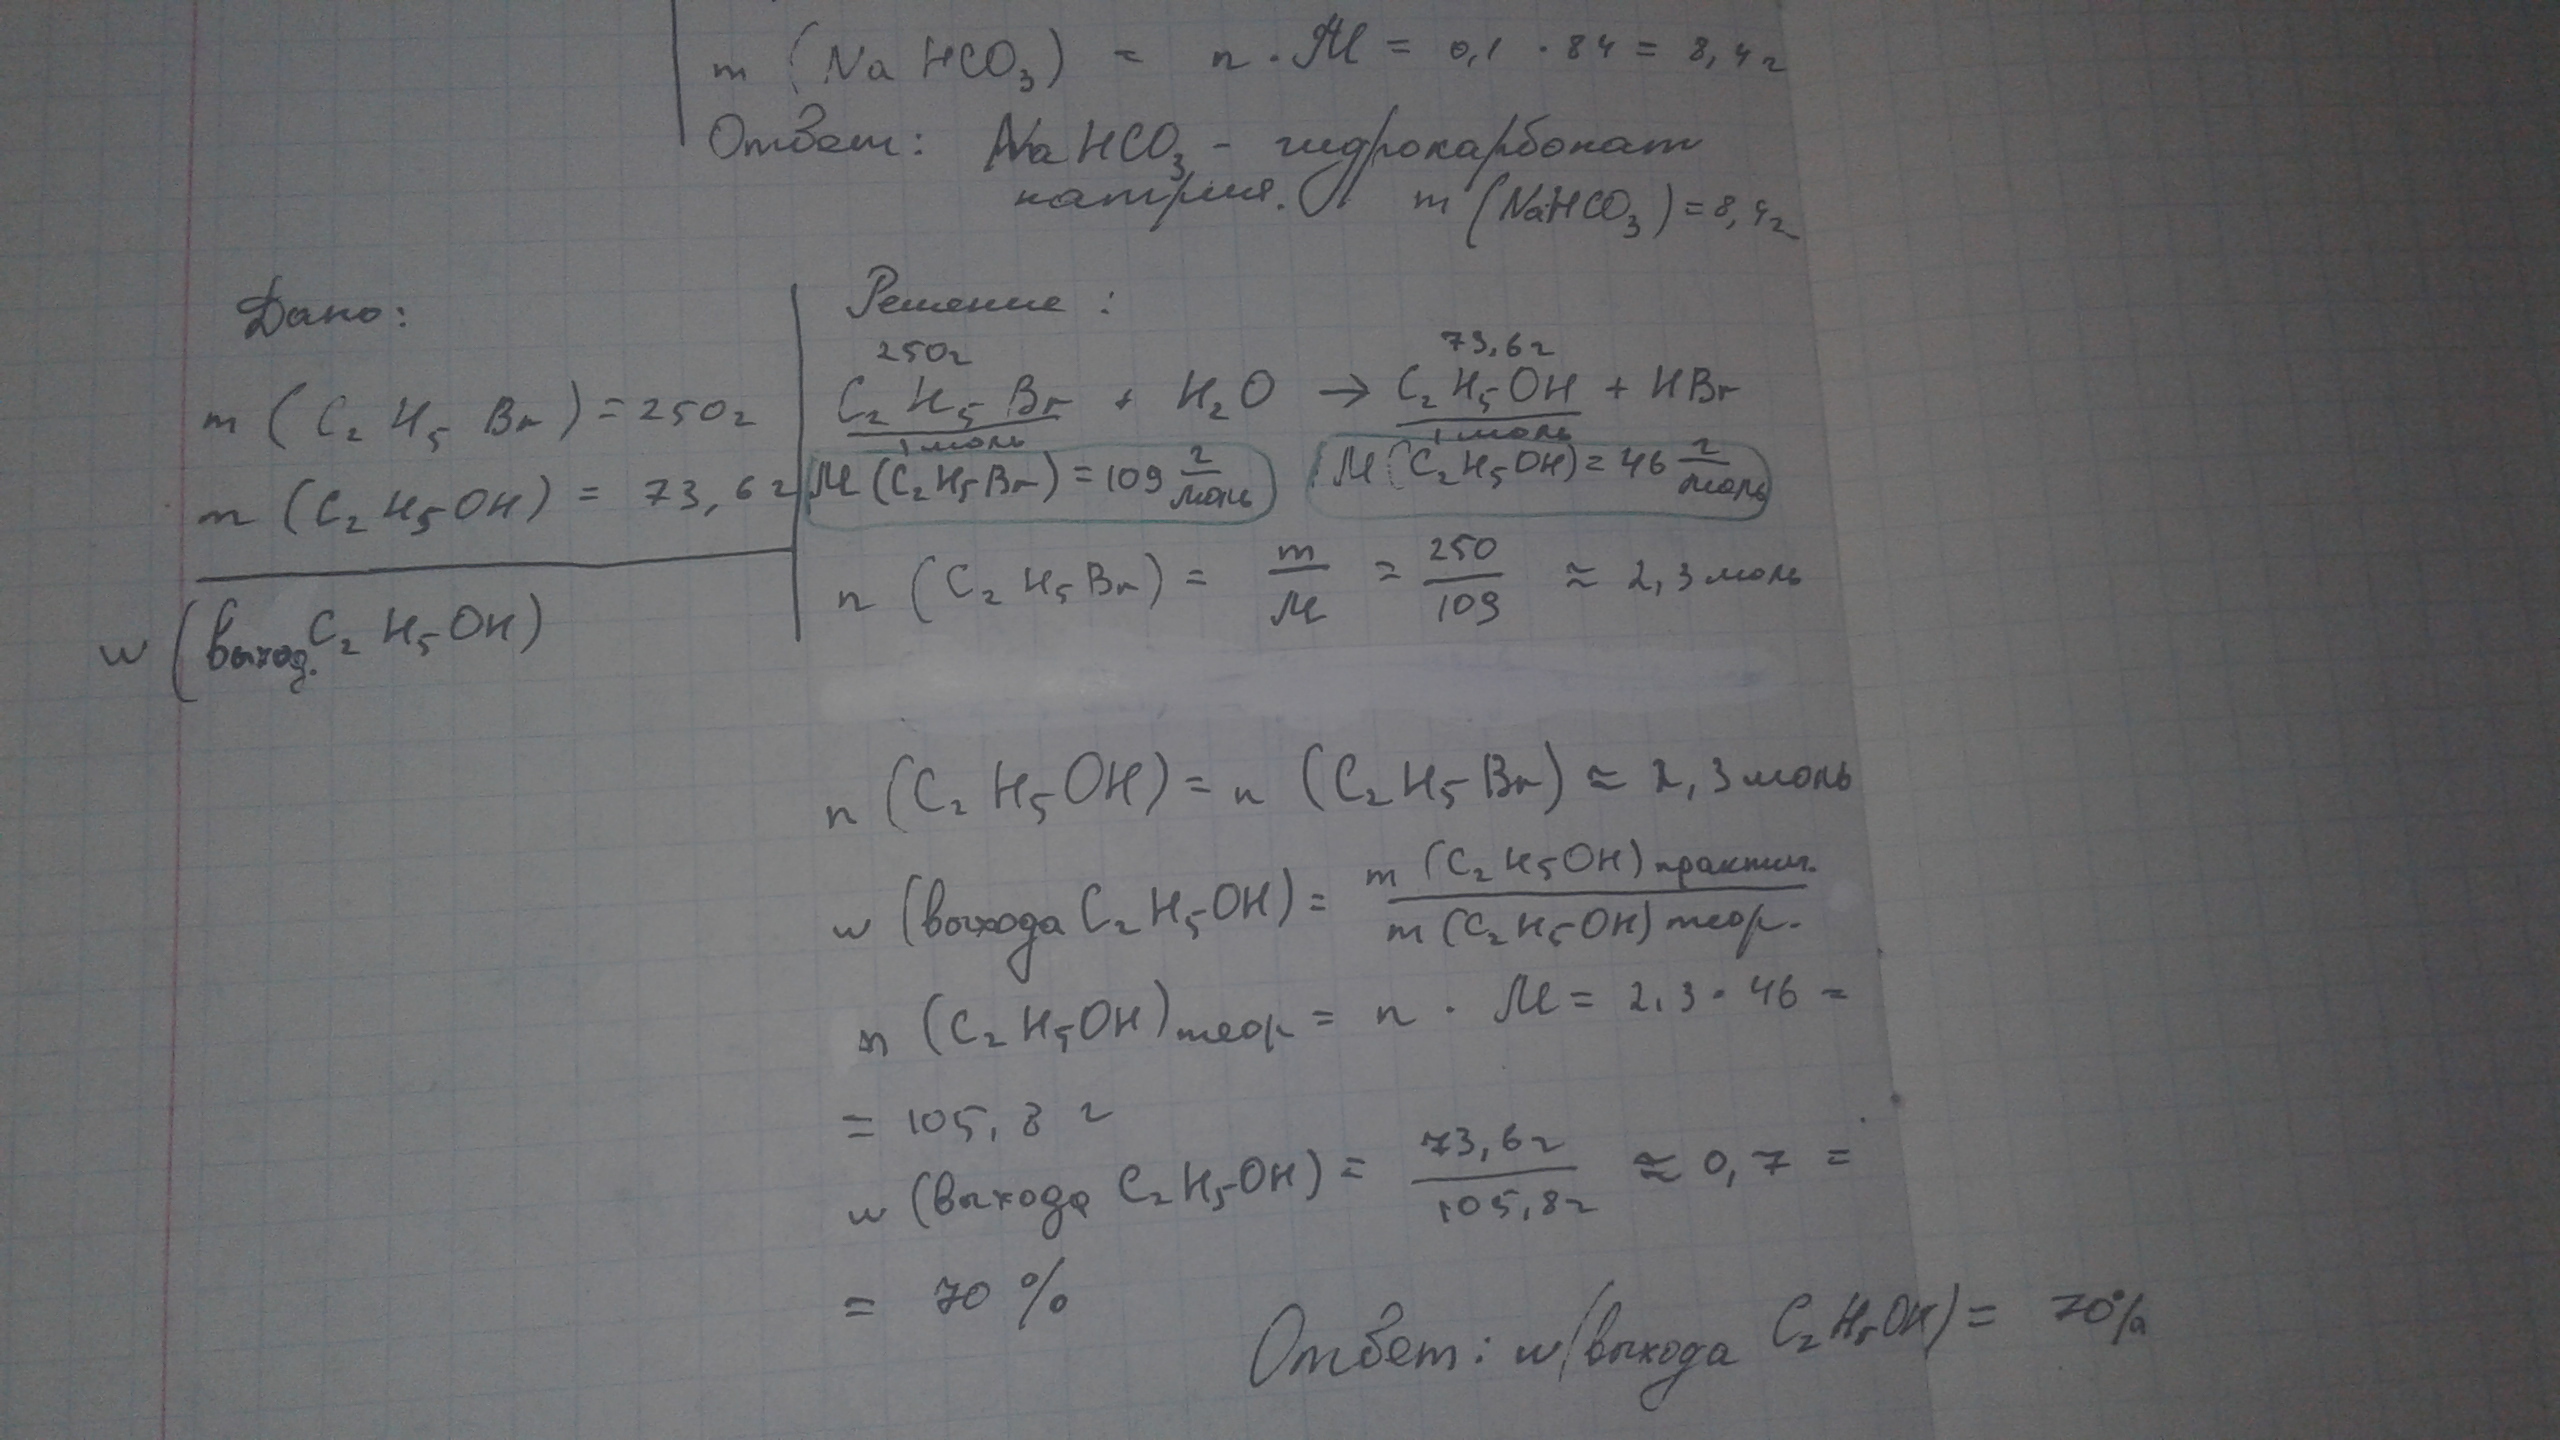 m (NaHCO₃) = n · M = 0,1 · 84 = 8,4г
Ответ: NaHCO₃ - гидрокарбонат
натрия. m (NaHCO₃) = 8,4г
Дано:
m (C₂H₅Br) = 250г
m (C₂H₅OH) = 73,6г
w (выход. C₂H₅OH)
Решение:
250г 73,6г
C₂H₅Br + H₂O → C₂H₅OH + HBr
1 моль 1 моль
M (C₂H₅Br) = 109 г/моль M (C₂H₅OH) = 46 г/моль
n (C₂H₅Br) = m/M = 250/109 ≈ 2,3 моль
n (C₂H₅OH) = n (C₂H₅Br) ≈ 2,3 моль
w (выхода C₂H₅OH) = m (C₂H₅OH) практич. / m (C₂H₅OH) теор.
m (C₂H₅OH) теор = n · M = 2,3 · 46 =
= 105,8 г
w (выхода C₂H₅OH) = 73,6г / 105,8г ≈ 0,7 =
= 70 %
Ответ: w (выхода C₂H₅OH) = 70%